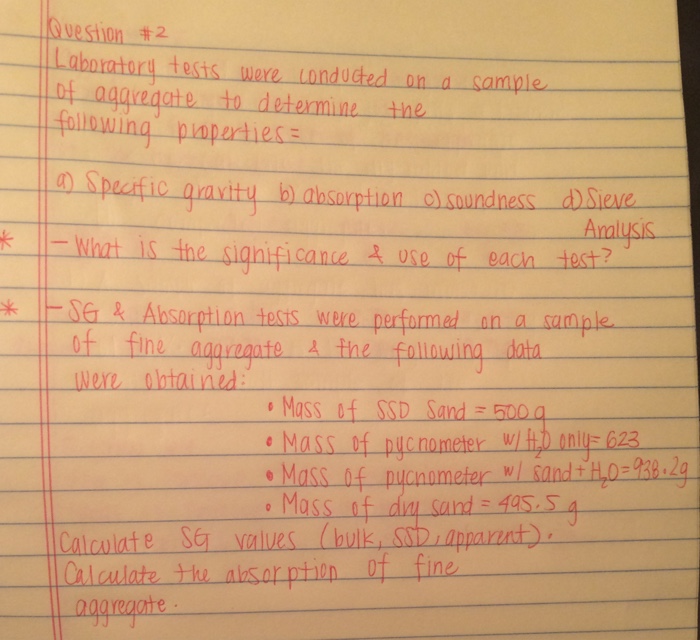 Question #2
Laboratory tests were conducted on a sample
of aggregate to determine the
following properties=
a) Specific gravity b) absorption c) soundness d) Sieve
Analysis
* - What is the significance & use of each test?
* - SG & Absorption tests were performed on a sample
of fine aggregate & the following data
were obtained:
• Mass of SSD Sand = 500 g
• Mass of pycnometer w/ H₂O only = 623
• Mass of pycnometer w/ sand + H₂O = 938.2g
• Mass of dry sand = 495.5 g
Calculate SG values (bulk, SSD, apparent).
Calculate the absorption of fine
aggregate.